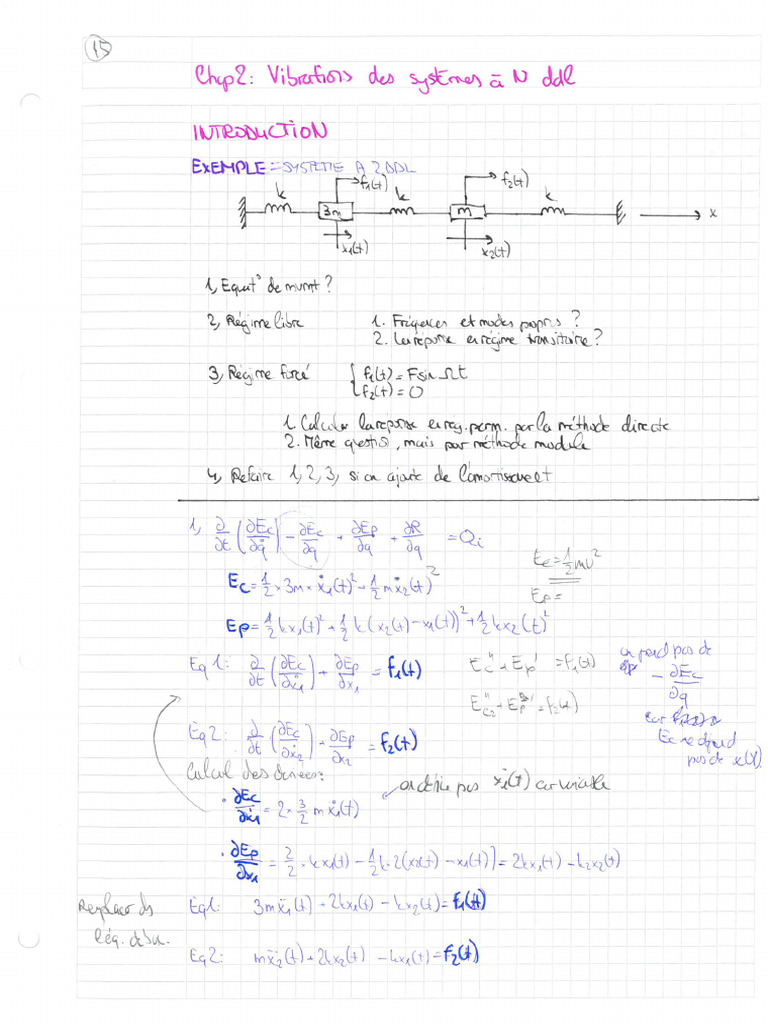 15
Chap 2: Vibrations des systèmes à N ddl
INTRODUCTION
EXEMPLE = SYSTEME A 2 DDL
f₁(t) f₂(t)
k k k
3m m x
x₁(t) x₂(t)
1, Equat° de mvmt ?
2, Régime libre 1. Fréquences et modes propres ?
2. La réponse en régime transitoire ?
3, Régime forcé { f₁(t) = F sin Ωt
f₂(t) = 0
1. Calculer la réponse en reg. perm. par la méthode directe
2. Même questio, mais par méthode modale
4, Refaire 1, 2, 3, si on ajoute de l'amortissement
1, ∂/∂t (∂Ec/∂q̇) - ∂Ec/∂q + ∂Ep/∂q + ∂R/∂q̇ = Qi
Ec = 1/2 × 3m × ẋ₁(t)² + 1/2 m ẋ₂(t)²
Ec = 1/2 mv²
Ep =
Ep = 1/2 kx₁(t)² + 1/2 k(x₂(t) - x₁(t))² + 1/2 kx₂(t)²
Eq 1: ∂/∂t (∂Ec/∂ẋ₁) + ∂Ep/∂x₁ = f₁(t)
Ec" + Ep' = f₁(t)
Ec₂" + Ep' = f₂(t)
on prend pas de
- ∂Ec/∂q
car
Ec ne dépend
pas de x(t)
Eq 2: ∂/∂t (∂Ec/∂ẋ₂) + ∂Ep/∂x₂ = f₂(t)
Calcul des dérivées:
• ∂Ec/∂ẋ₁ = 2 × 3/2 m ẋ₁(t)
on dérive pas ẋ₁(t) car variable
• ∂Ep/∂x₁ = 2/2 × kx₁(t) - 1/2 k · 2(x₂(t) - x₁(t))] = 2kx₁(t) - k₂x₂(t)
Remplacer ds
l'éq. début.
Eq1: 3mẍ₁(t) + 2kx₁(t) - kx₂(t) = f₁(t)
Eq2: mẍ₂(t) + 2kx₂(t) - kx₁(t) = f₂(t)